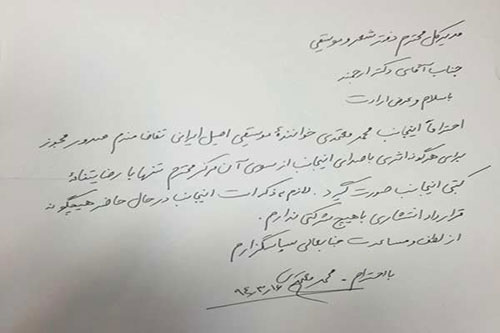 مدیرکل محترم دفتر شعر و موسیقی
جناب آقای دکتر ارجمند
با سلام و عرض ارادت
احتراماً اینجانب محمد معتمدی خوانندهٔ موسیقی اصیل ایرانی تقاضامندم صدور مجوز
برای هرگونه اثری با صدای اینجانب از سوی آن مرکز محترم تنها با رضایتنامهٔ
کتبی اینجانب صورت گیرد. لازم به ذکر است اینجانب در حال حاضر هیچگونه
قرارداد انتشاری با هیچ شرکتی ندارم.
از لطف و مساعدت جنابعالی سپاسگزارم
با احترام - محمد معتمدی ۹۴،۳،۱۶